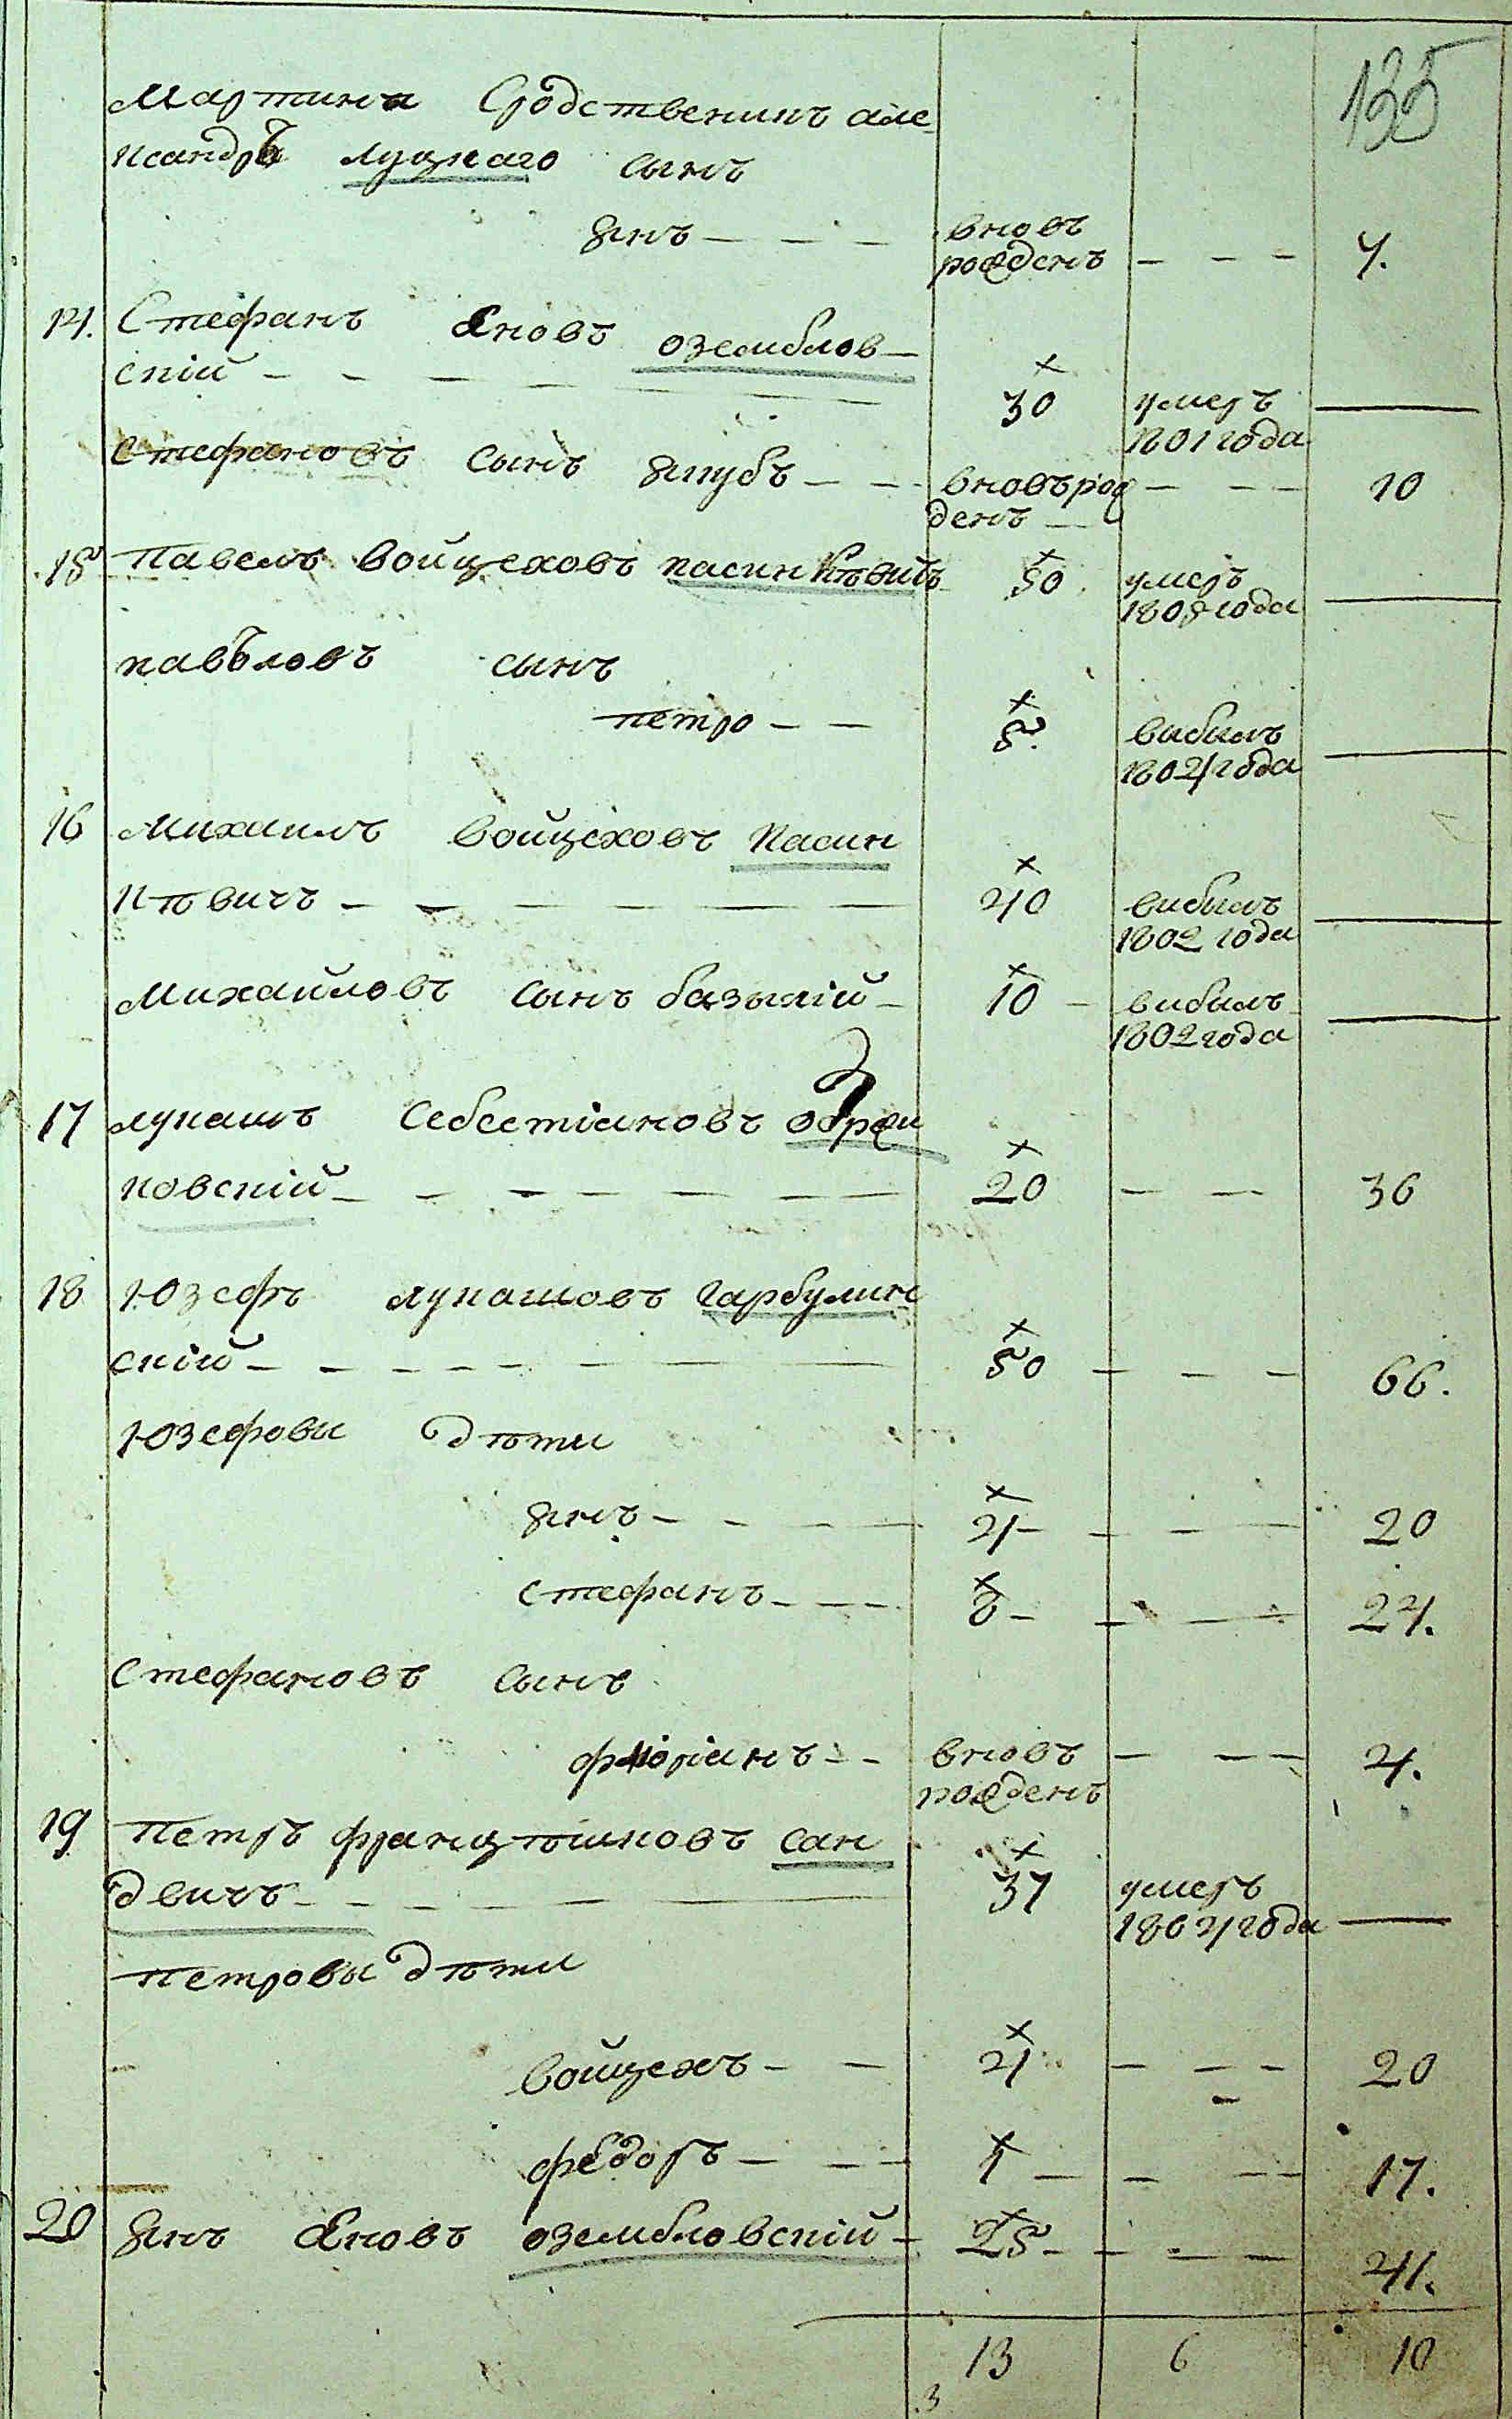 135
Мартина Сродственикъ але-
ксандра луцкаго сынъ
янъ — — — вновъ
рожденъ — — — 4.
14. Стефанъ Яновъ оземблов-
скій — — — 30 умеръ
1801 года
Стефановъ сынъ якубъ — — вновърож — — 10
денъ
15 Павелъ войцеховъ касинкѣвичъ 50 умеръ
1808 года
павъловъ сынъ
петро — — 8. вибилъ
1804 года
16 Михаилъ войцеховъ Касин
кѣвичъ — — — 40 вибилъ
1802 года
Михайловъ сынъ базылій — 10 — вибилъ
1802 года
17 лукашъ Себестіановъ
ковскій — — — 20 — — 36
18 Юзефъ лукашовъ гарбулин
скій — — — 50 — — — 66.
Юзефови дѣти
янъ — — — 4 — — — 20
стефанъ — — — 8 — — — 24.
Стефановъ сынъ
флоріанъ — — вновъ — — — 4.
рожденъ
19 Петръ францѣшковъ сан
двичъ — — — 37 умеръ
1804 года
Петровы дѣти
Войцехъ — — 4 — — — 20
федоръ — — — 1 — — — 17.
20 янъ Яновъ озембловскій — 25 — — — 41.
13 6 10
3